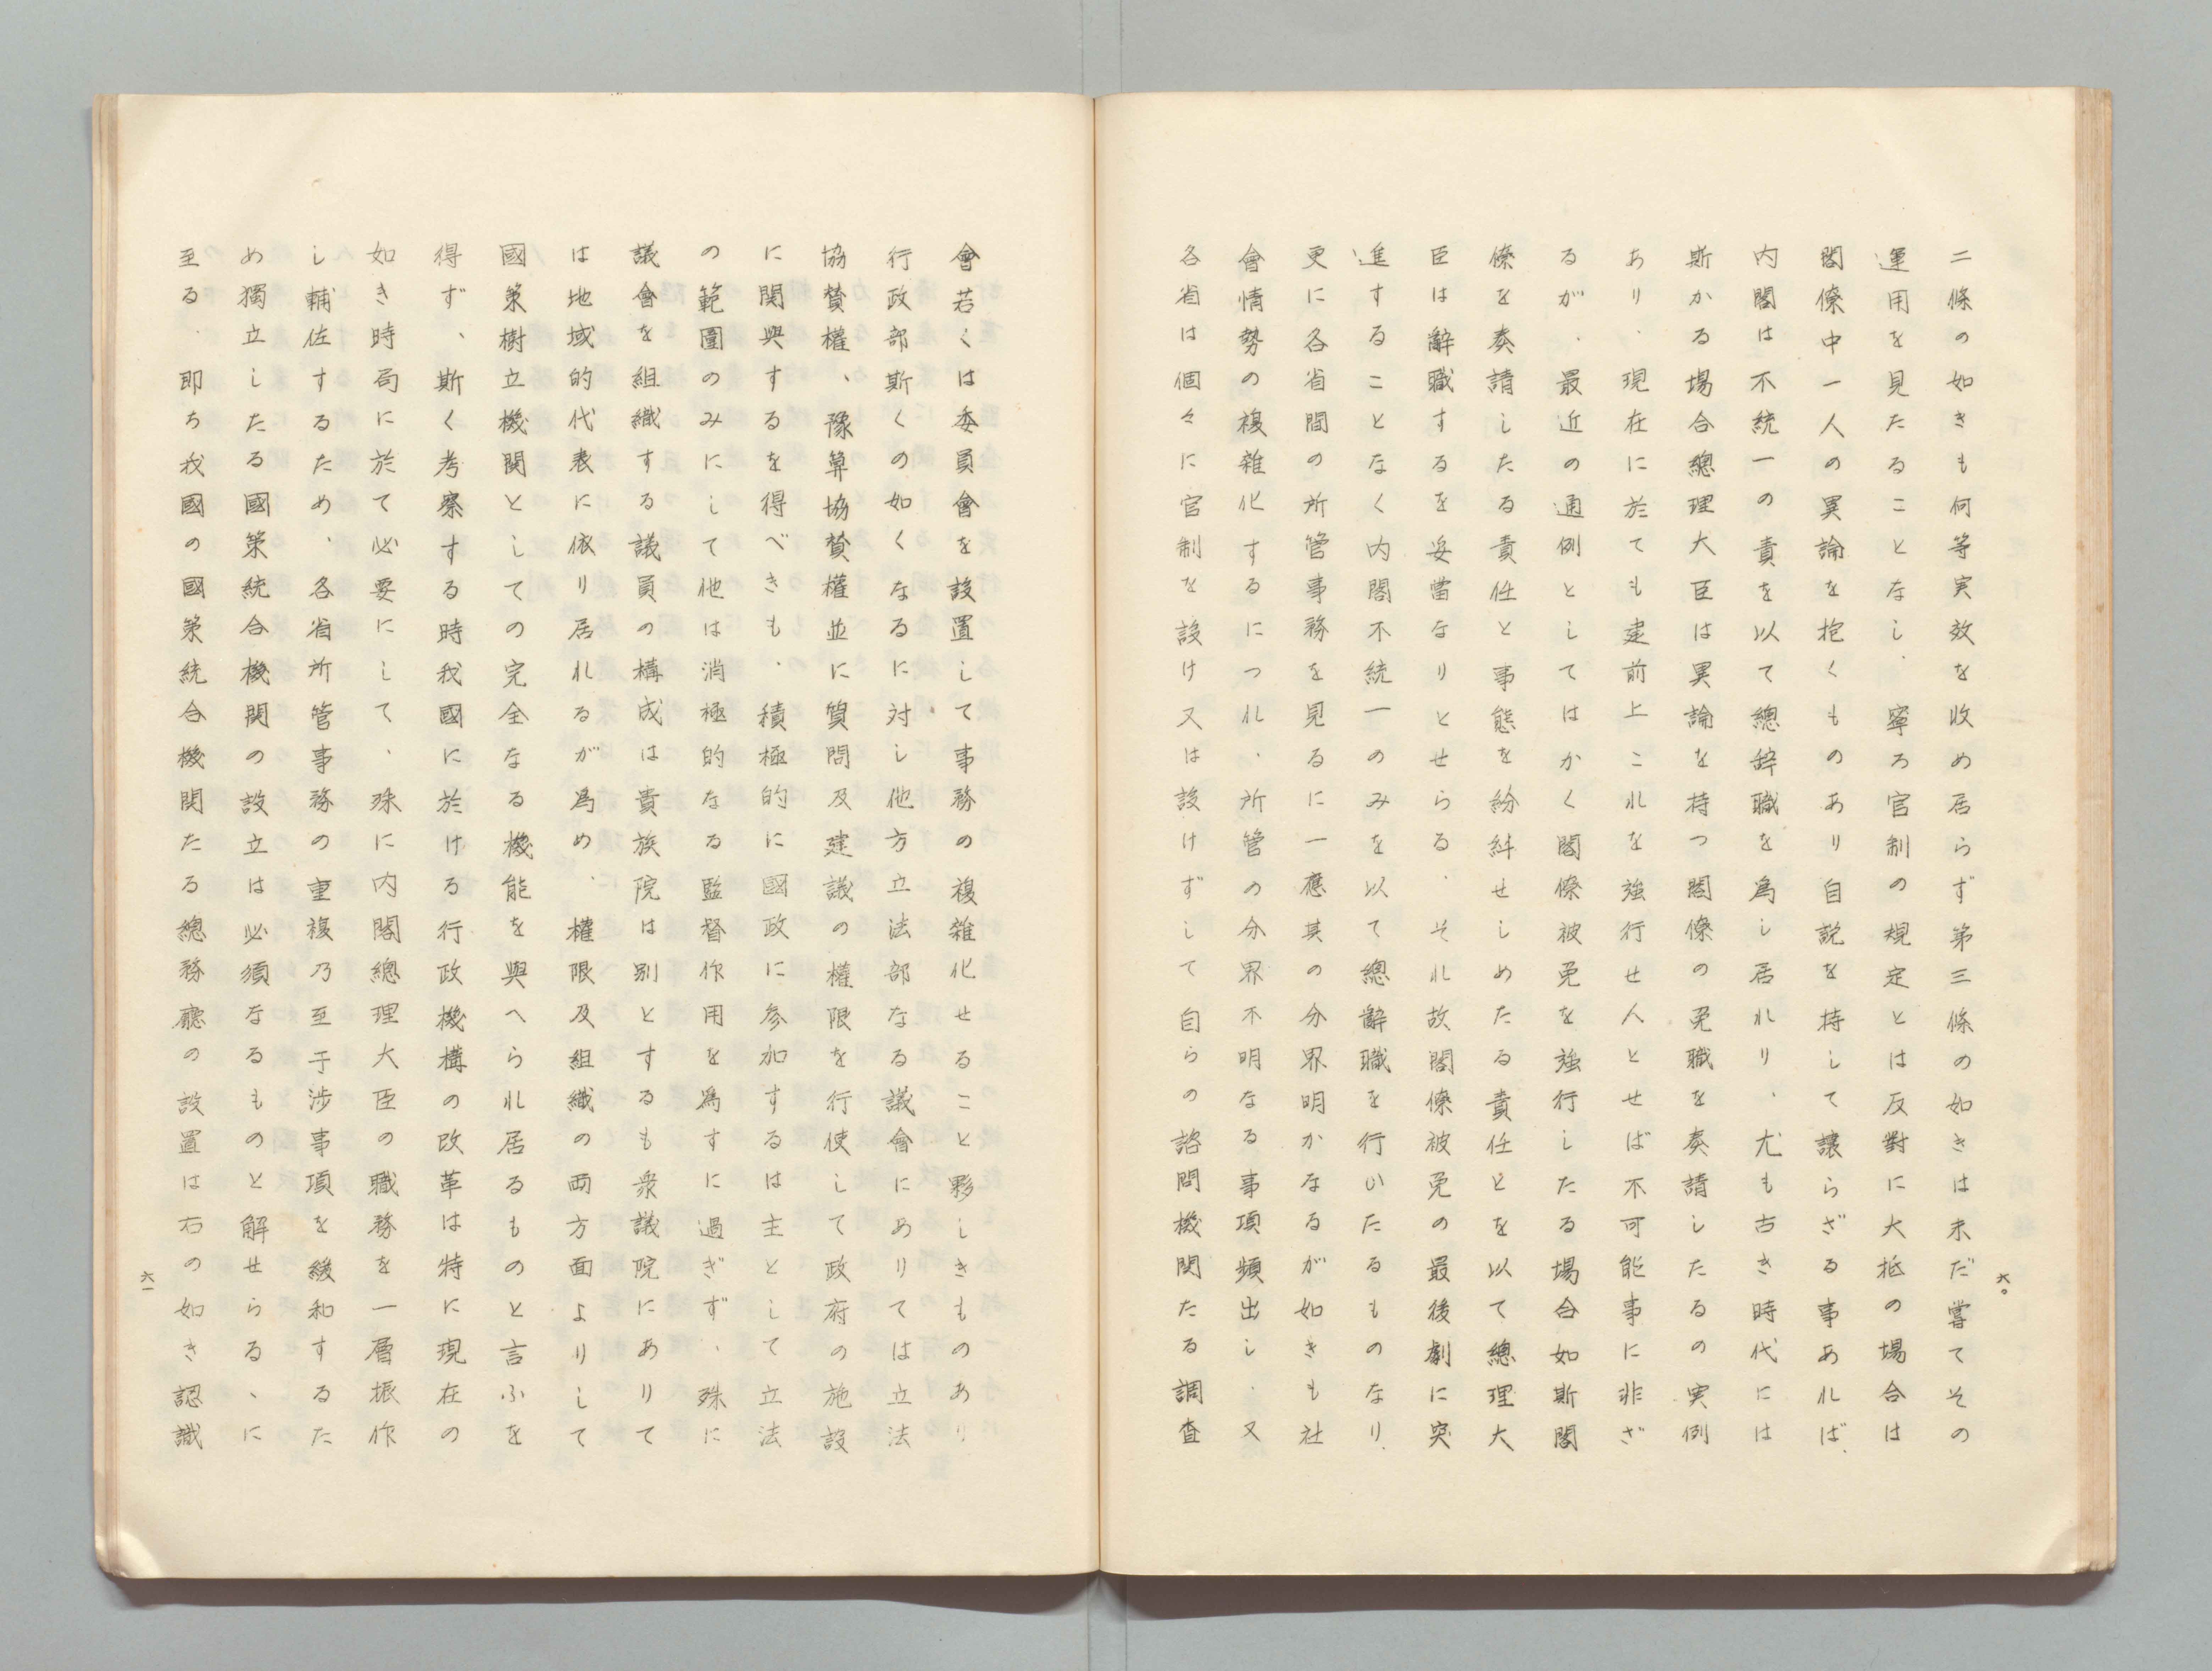 二條の如きも何等実效を收め居らず第三條の如きは未だ嘗てその
運用を見たることなし、寧ろ官制の規定とは反對に大抵の場合は
閣僚中一人の異論を抱くものあり自説を持して讓らざる事あれば、
内閣は不統一の責を以て總辞職を爲し居れり、尤も古き時代には
斯かる場合總理大臣は異論を持つ閣僚の免職を奏請したるの実例
あり、現在に於ても建前上これを強行せ人とせば不可能事に非ざ
るが、最近の通例としてはかく閣僚被免を強行したる場合如斯閣
僚を奏請したる責任と事態を紛糾せしめたる責任とを以て總理大
臣は辭職するを妥當なりとせらる、それ故閣僚被免の最後劇に突
進することなく内閣不統一のみを以て總辭職を行いたるものなり、
更に各省間の所管事務を見るに一應其の分界明かなるが如きも社
會情勢の複雜化するにつれ、所管の分界不明なる事項頻出し、又
各省は個々に官制を設け又は設けずして自らの諮問機関たる調査
六〇
會若くは委員會を設置して事務の複雜化せること夥しきものあり
行政部斯くの如くなるに対し他方立法部なる議會にありては立法
協賛權、豫算協賛權並に質問及建議の權限を行使して政府の施設
に関與するを得べきも、積極的に國政に参加するは主として立法
の範圍のみにして他は消極的なる監督作用を爲すに過ぎず、殊に
議會を組織する議員の構成は貴族院は別とするも衆議院にありて
は地域的代表に依り居れるが爲め、權限及組織の両方面よりして
國策樹立機関としての完全なる機能を與へられ居るものと言ふを
得ず、斯く考察する時我國に於ける行政機構の改革は特に現在の
如き時局に於て必要にして、殊に内閣總理大臣の職務を一層振作
し輔佐するため、各省所管事務の重複乃至干渉事項を緩和するた
め獨立したる國策統合機関の設立は必須なるものと解せらるゝに
至る、即ち我國の國策統合機関たる總務廳の設置は右の如き認識
六一